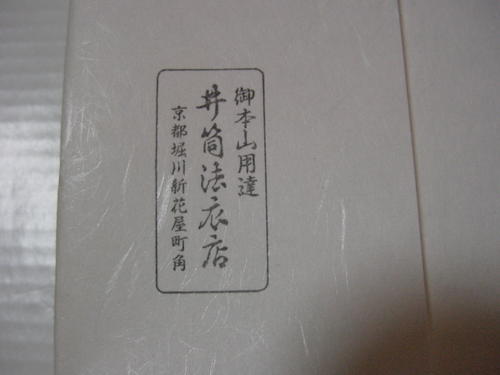 御本山用達
井筒法衣店
京都堀川新花屋町角